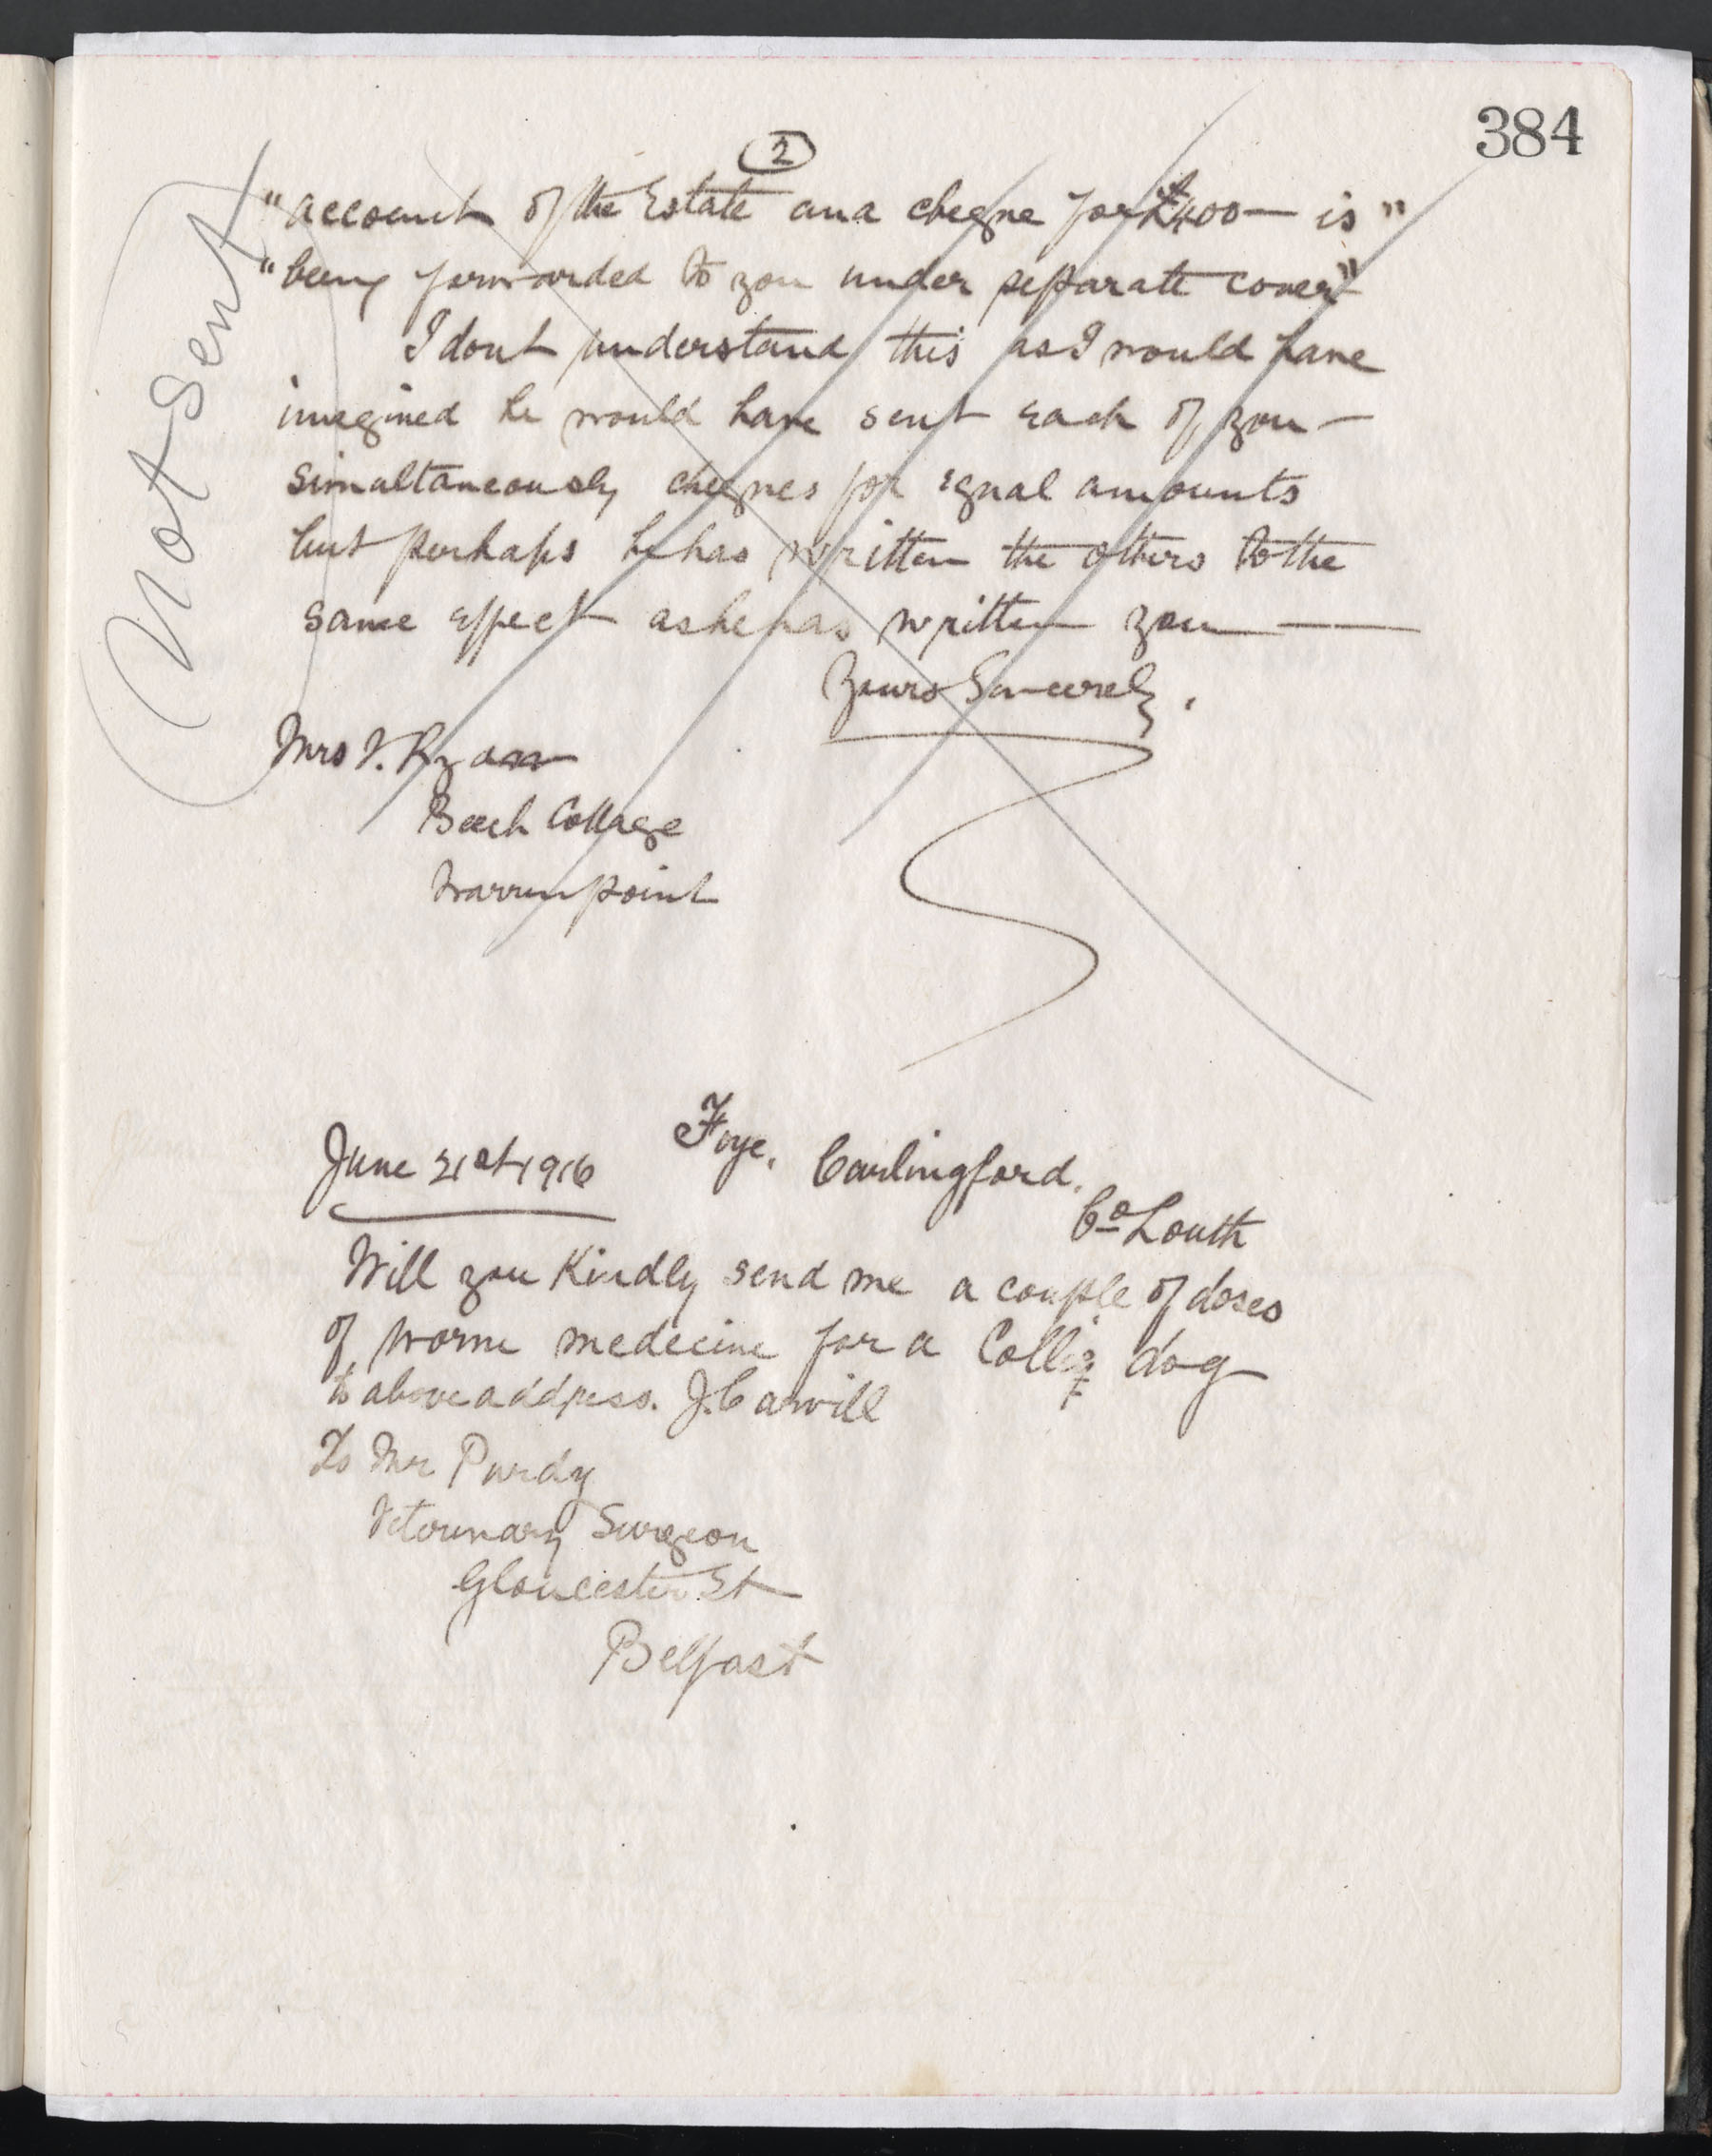 384
2
Not sent
"account of the Estate and cheque for £400 — is"
"being forwarded to you under separate cover"
I dont understand this as I would have
imagined he would have sent each of you —
simultaneously cheques for equal amounts
but perhaps he has written the others to the
same effect as he has written you —
Yours Sincerely,
Mrs V. Ryan
Beech Cottage
Warrenpoint
June 21st 1916 Foye, Carlingford.
Co Louth
Will you Kindly send me a couple of doses
of worm medecine for a Collie dog
to above address. J. Carvill
To Mr Purdy
Veterinary Surgeon
Gloucester St
Belfast